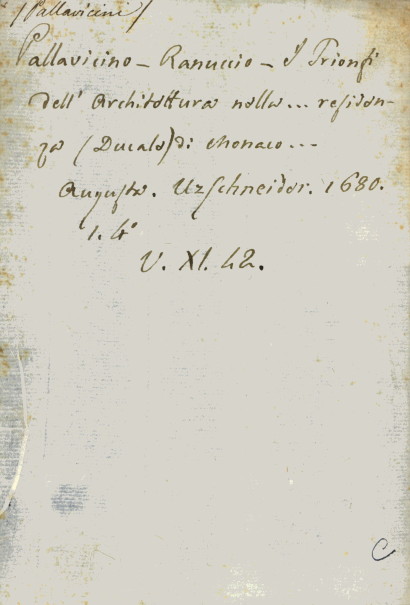 /Pallavicini/
Pallavicino - Ranuccio - I Trionfi
dell' Architettura nella ... residen-
za (Ducale) di Monaco ...
Augusta. Utzschneider. 1680.
1. 4°
V. XI. 42.
C